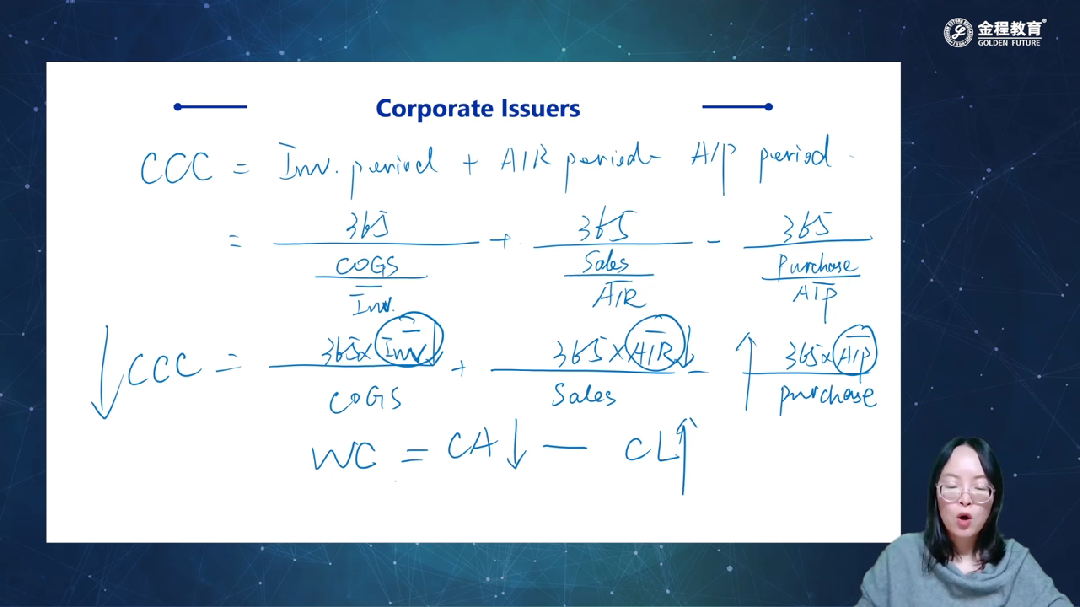 金程教育®
GOLDEN FUTURE
Corporate Issuers
CCC = Inv. period + A/R period - A/P period
= 365 / (COGS / Inv.) + 365 / (Sales / A/R) - 365 / (Purchase / A/P)
↓ CCC = 365 × Inv ↓ / COGS + 365 × A/R ↓ / Sales - ↑ 365 × A/P / purchase
WC = CA ↓ — CL ↑